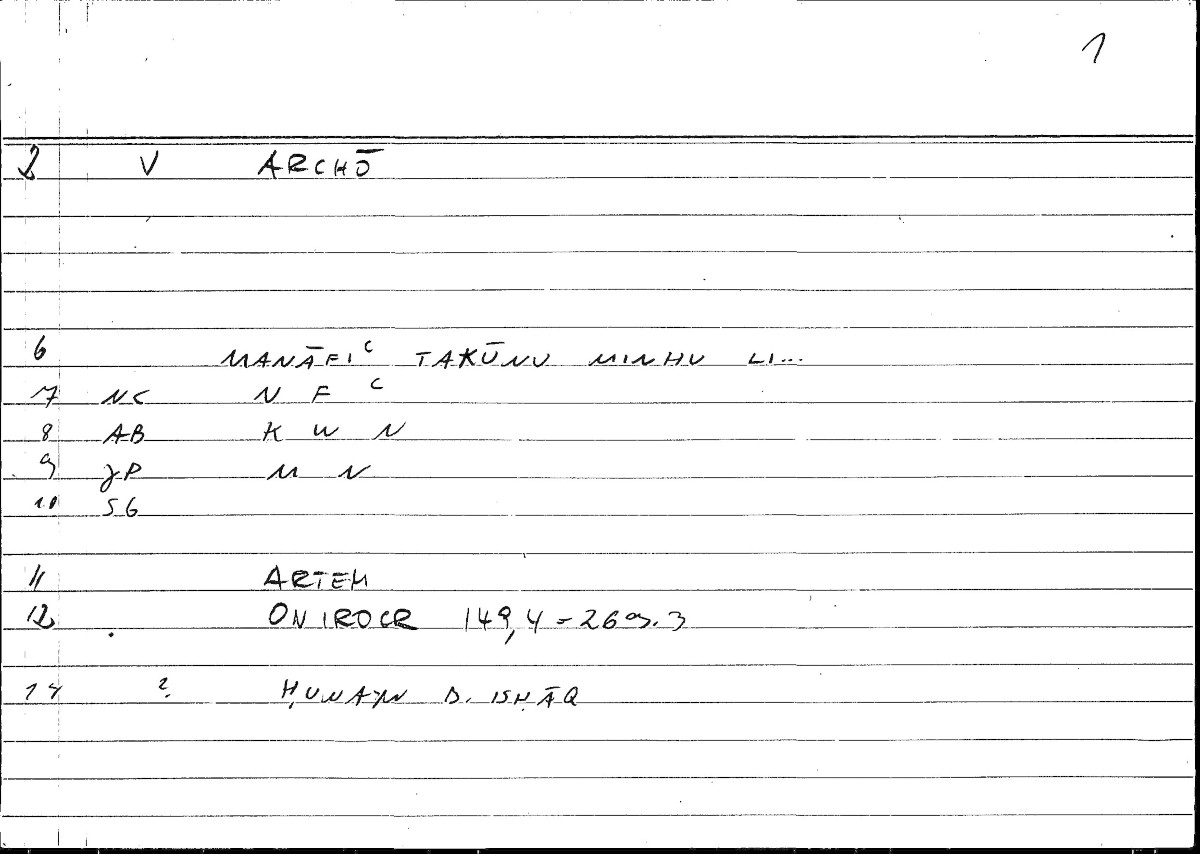 1
2 V ARCHŌ
6 MANĀFIᶜ TAKŪNU MINHU LI...
7 NC N F ᶜ
8 AB K W N
9 JP M N
10 SG
11 ARTEM
12 ONIROCR 149,4 = 269.3
14 ? ḤUNAYN B. ISḤĀQ